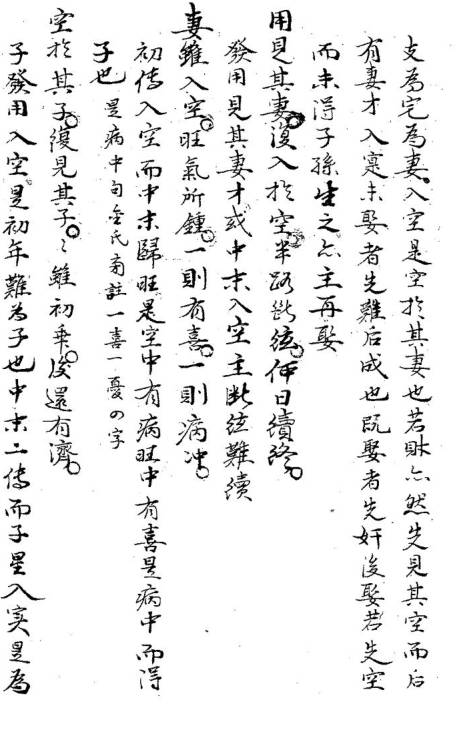 支為宅為妻入空是空於其妻也若財亦然先見其空而后
有妻才入寔未娶者先難后成也既娶者先奸後娶若先空
而未得子孫生之亦主再娶
用見其妻復入於空半路斷絃何日續絡
發用見其妻才或中末入空主斷絃難續
妻雖入空旺氣所鍾一則有喜一則病冲
初傳入空而中末歸旺是空中有病旺中有喜是病中而得
子也 是病中句金氏有註一喜一憂の字
空於其子復見其子々雖初乘後還有濟
子發用入空是初年難為子也中末二傳而子星入実是為